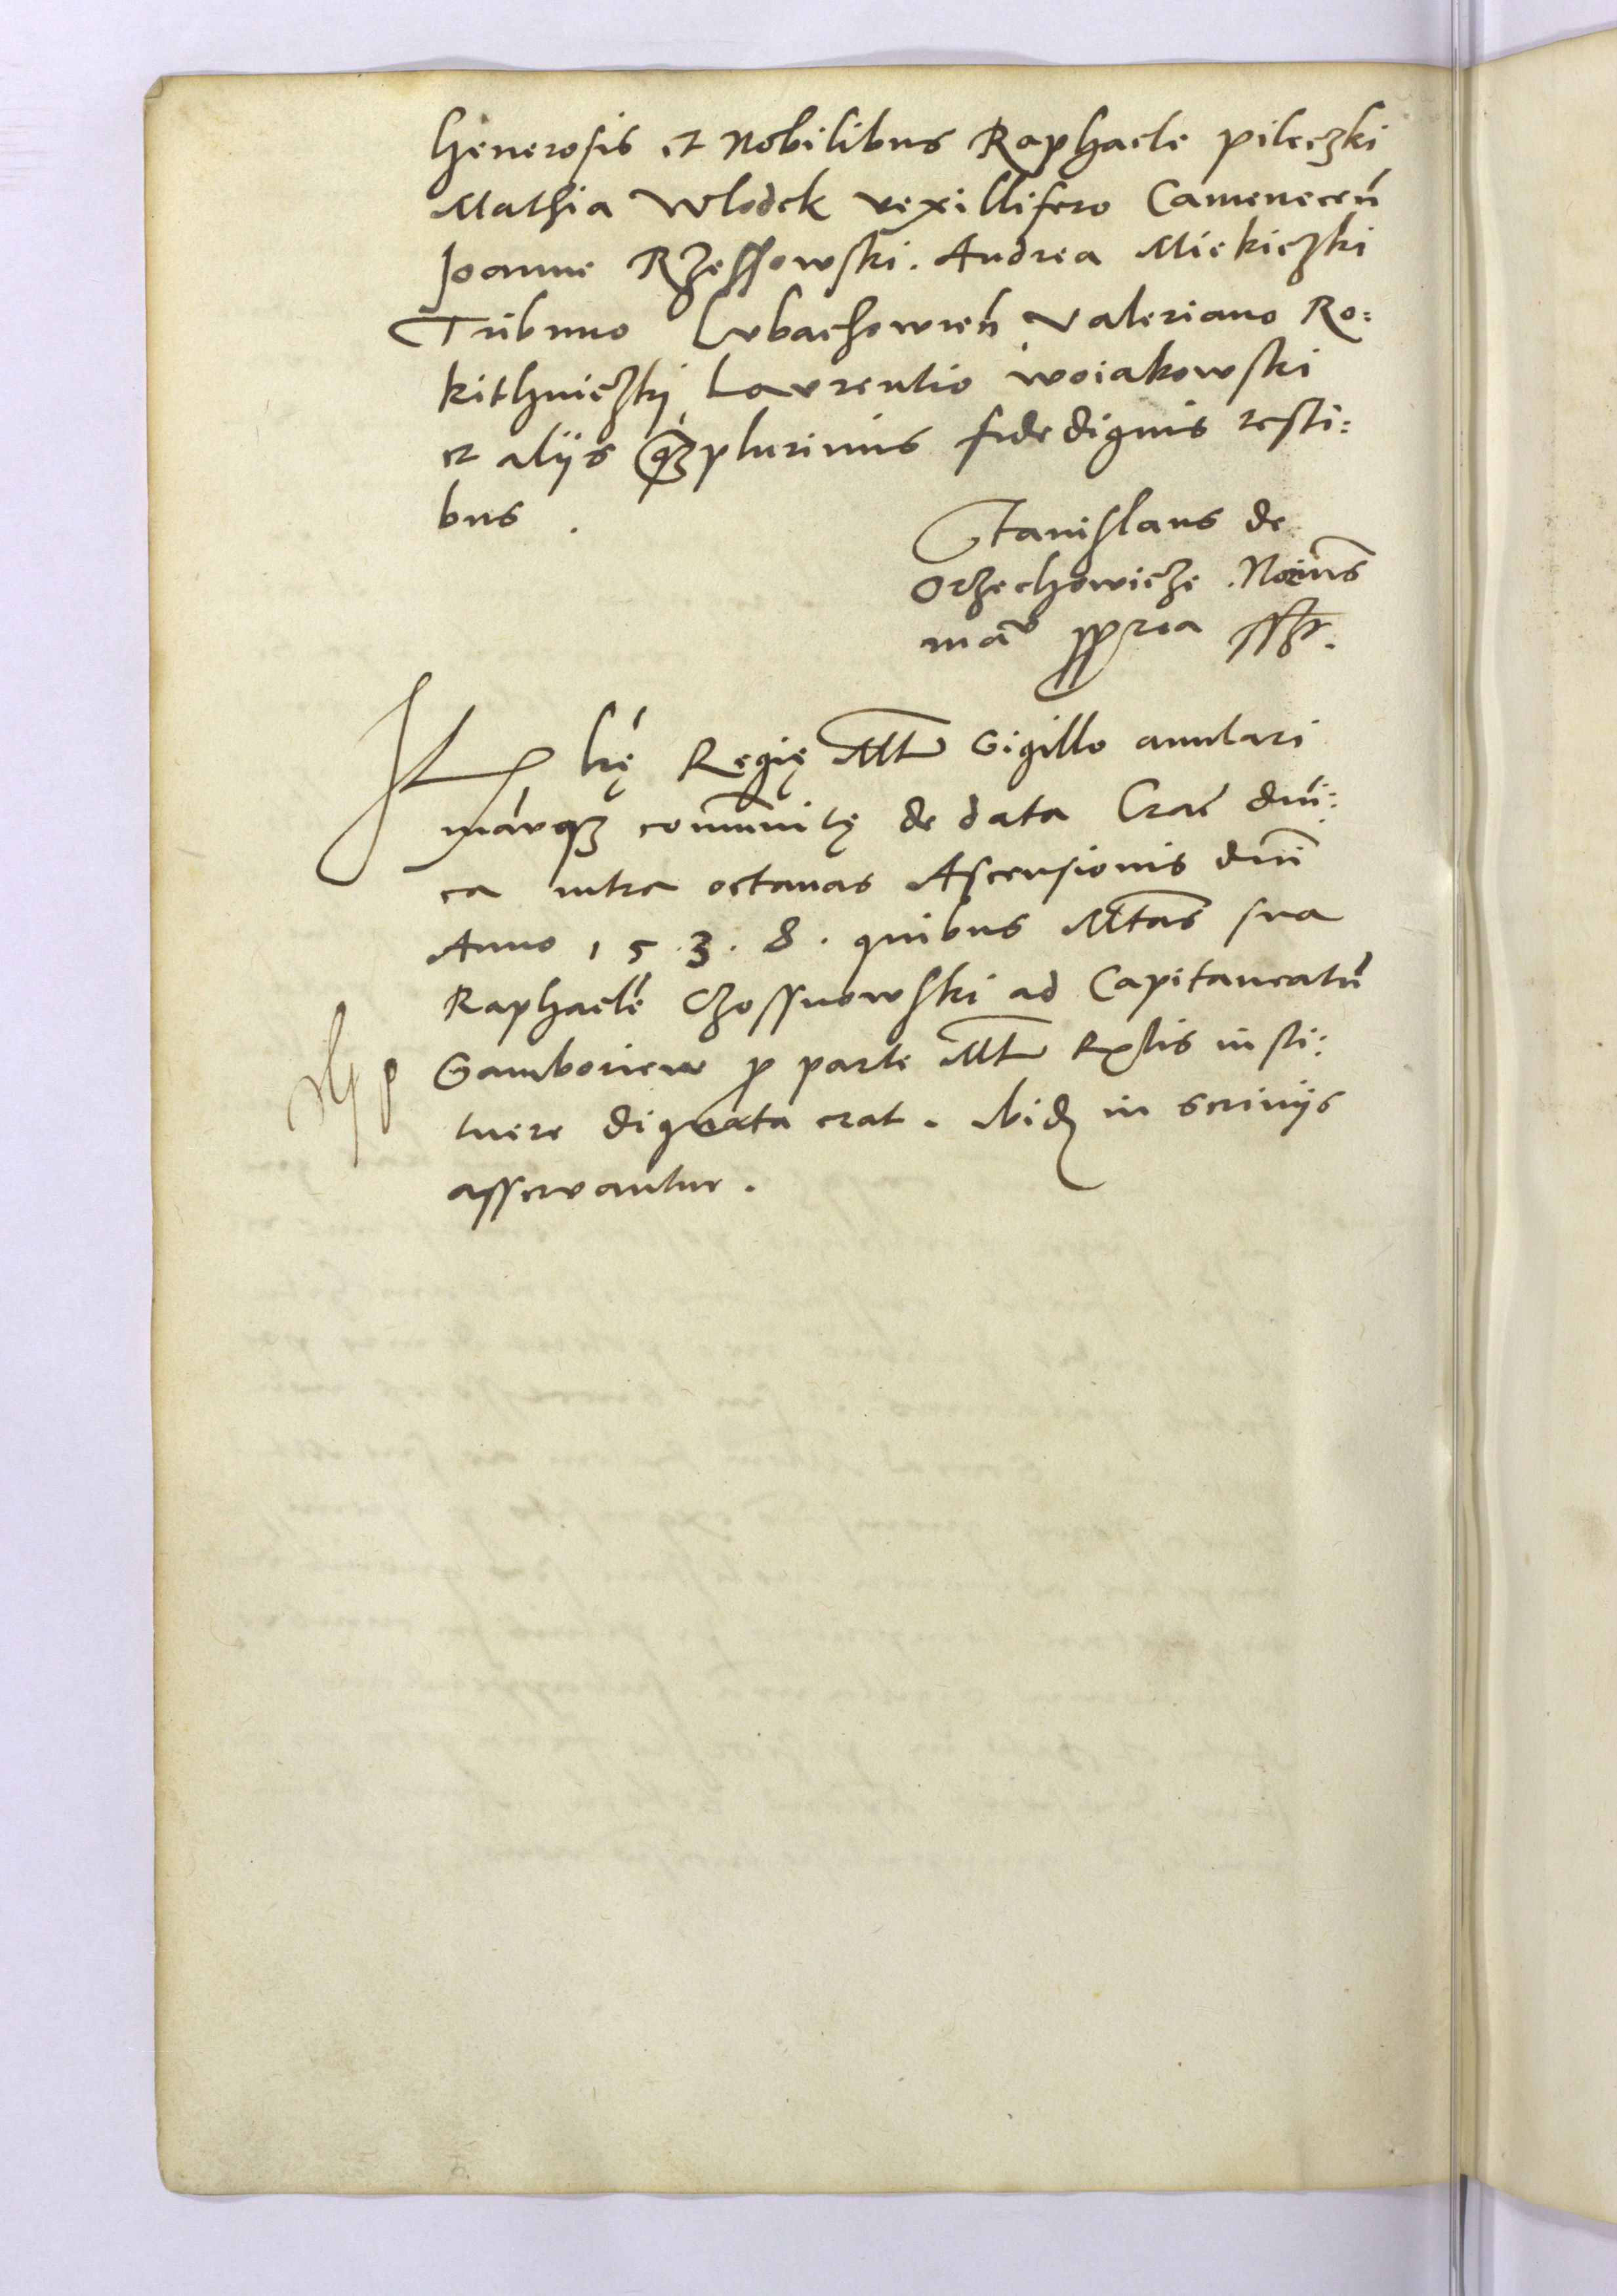 Generosis et Nobilibus Raphaele pileczki
Mathia Wlodek vexillifero Camenecen̄
Joanne Rzessowski. Andrea Miekiczki
Tribuno Lvbachowien̄ Valeriano Ro:
kithniczkj, Lavrentio woiakowski
et alijs qz plurimis fide dignis testi:
bus.
Stanislaus de
Orzechowicze. Noīus
māv ppria sszt.
Itē lrę Regię Mtis Sigillo annulari
māvqz com̄unitę de data Crač dnī:
ca intra octauas Ascensionis dnī
Anno 1538. quibus Mtas sua
Raphaelē Czossnowski ad Capitaneatū
Samborien p parte Mtis Rglis insti:
tuere dignata erat. ibidē in scrinijs
asservantur.